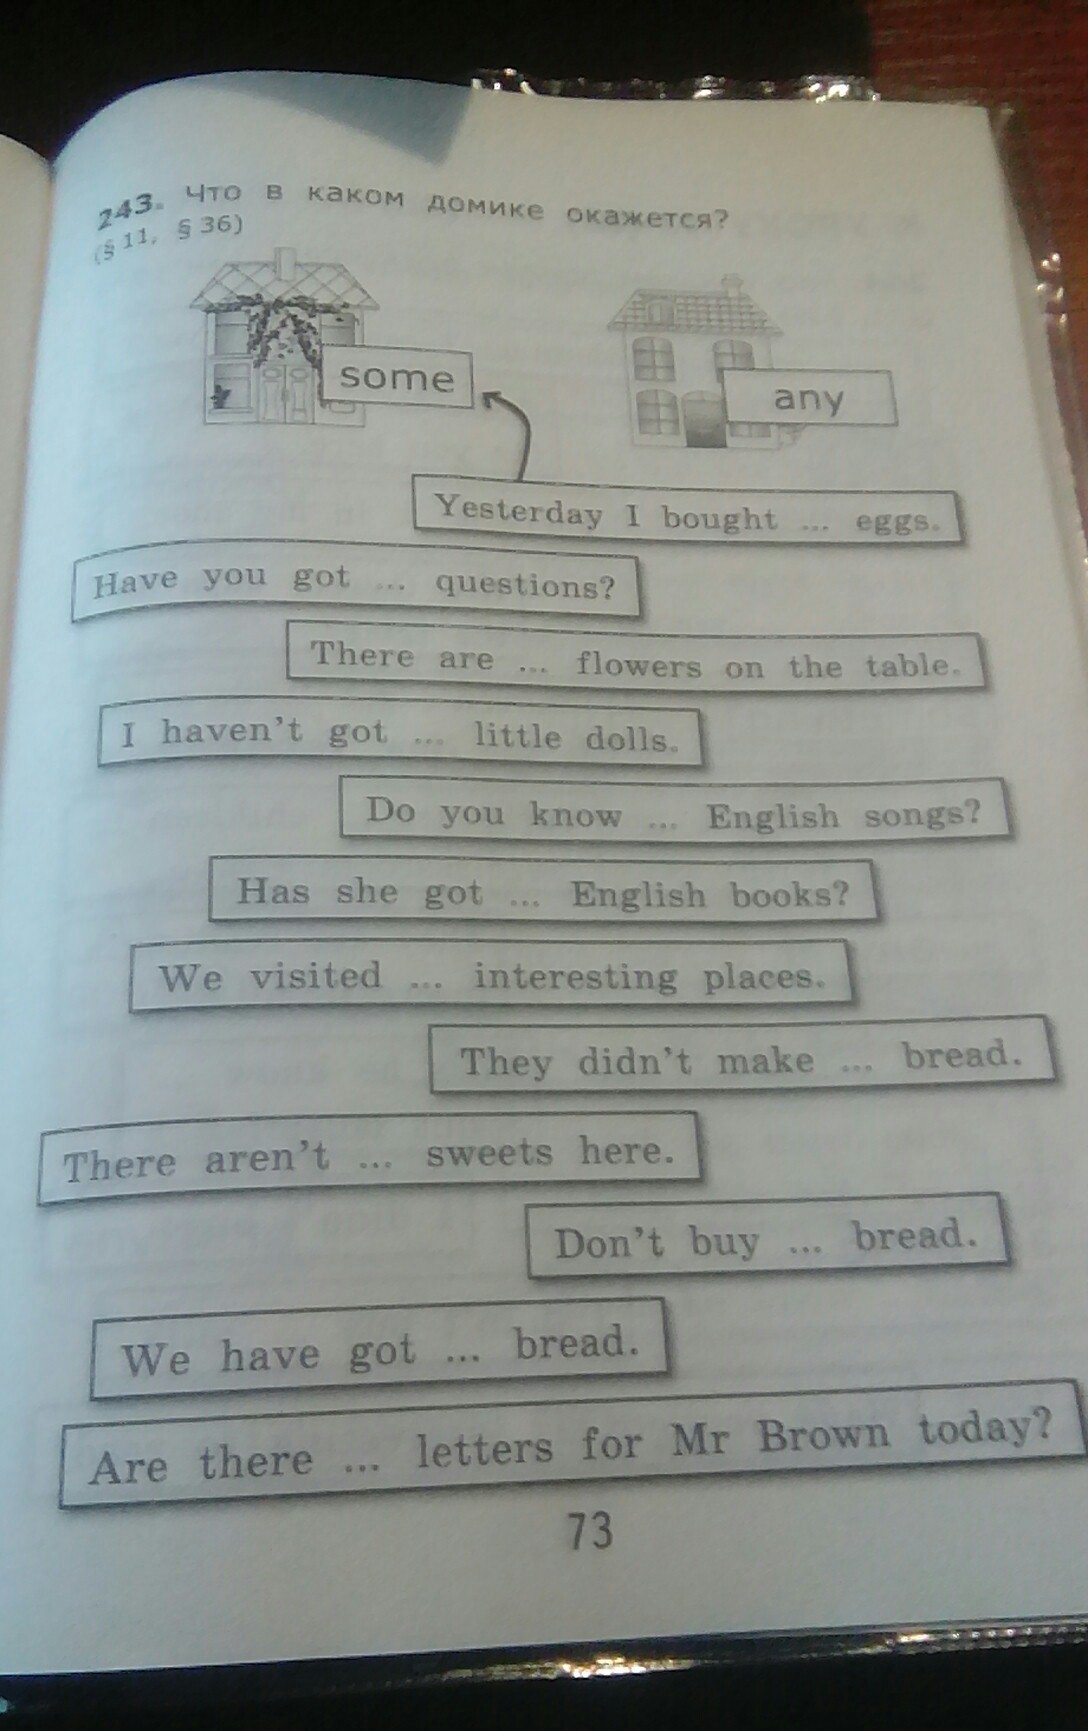 243. Что в каком домике окажется?
(§ 11, § 36)
some
any
Yesterday I bought ... eggs.
Have you got ... questions?
There are ... flowers on the table.
I haven't got ... little dolls.
Do you know ... English songs?
Has she got ... English books?
We visited ... interesting places.
They didn't make ... bread.
There aren't ... sweets here.
Don't buy ... bread.
We have got ... bread.
Are there ... letters for Mr Brown today?
73